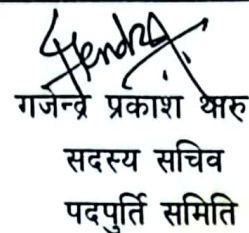 गजेन्द्र प्रकाश थारु
सदस्य सचिव
पदपुर्ति समिति